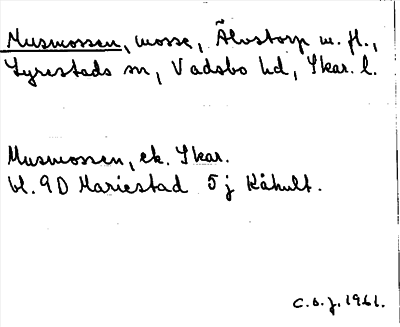 Musmossen, mosse, Älvstorp m. fl.,
Lyrestads sn, Vadsbo hd, Skar. l.
Musmossen, ek. Skar.
bl. 9D Mariestad 5j Kåhult.
C.O.J. 1961.